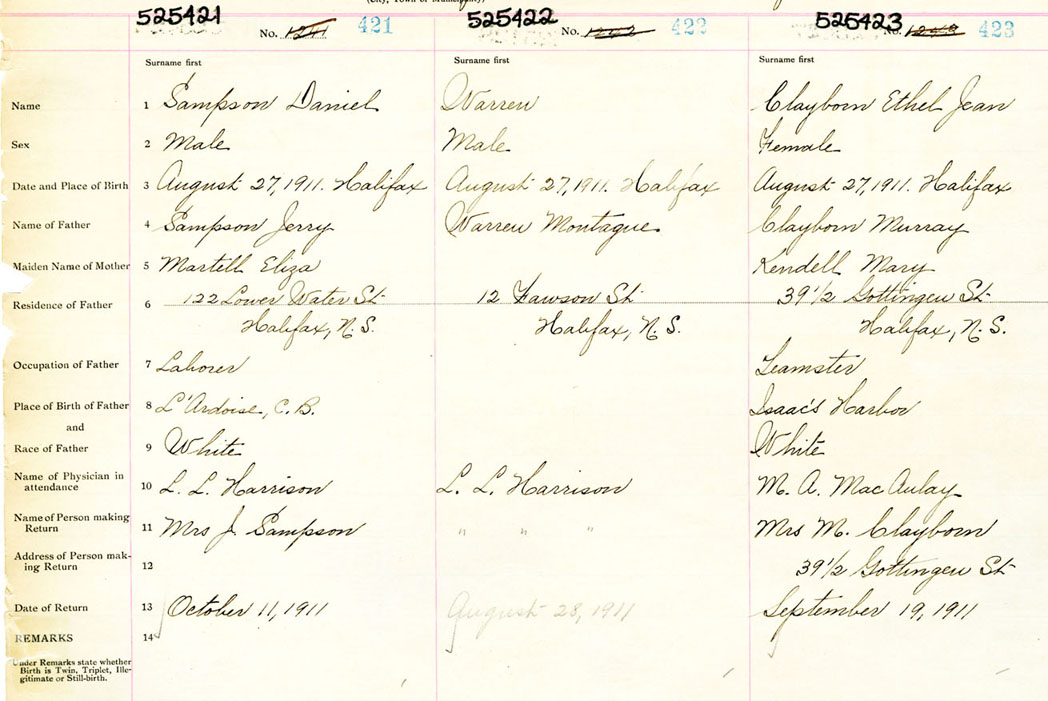 (City, Town or Municipality)
525421 525422 525423
No. 1241 421 No. 1242 422 No. 1243 423
Surname first Surname first Surname first
Name 1 Sampson Daniel Warren Clayborn Ethel Jean
Sex 2 Male Male Female
Date and Place of Birth 3 August 27, 1911. Halifax August 27, 1911. Halifax August 27, 1911. Halifax
Name of Father 4 Sampson Jerry Warren Montague Clayborn Murray
Maiden Name of Mother 5 Martell Eliza Kendell Mary
Residence of Father 6 122 Lower Water St. 12 Fawson St. 39 1/2 Gottingen St.
Halifax, N.S. Halifax, N.S. Halifax, N.S.
Occupation of Father 7 Laborer Teamster
Place of Birth of Father 8 L'Ardoise, C.B. Isaac's Harbor
and
Race of Father 9 White White
Name of Physician in
attendance 10 L. L. Harrison L. L. Harrison M. A. MacAulay
Name of Person making
Return 11 Mrs J. Sampson " " " Mrs M. Clayborn
Address of Person mak-
ing Return 12 39 1/2 Gottingen St.
Date of Return 13 October 11, 1911 August 28, 1911 September 19, 1911
REMARKS 14
Under Remarks state whether
Birth is Twin, Triplet, Ille-
gitimate or Still-birth.